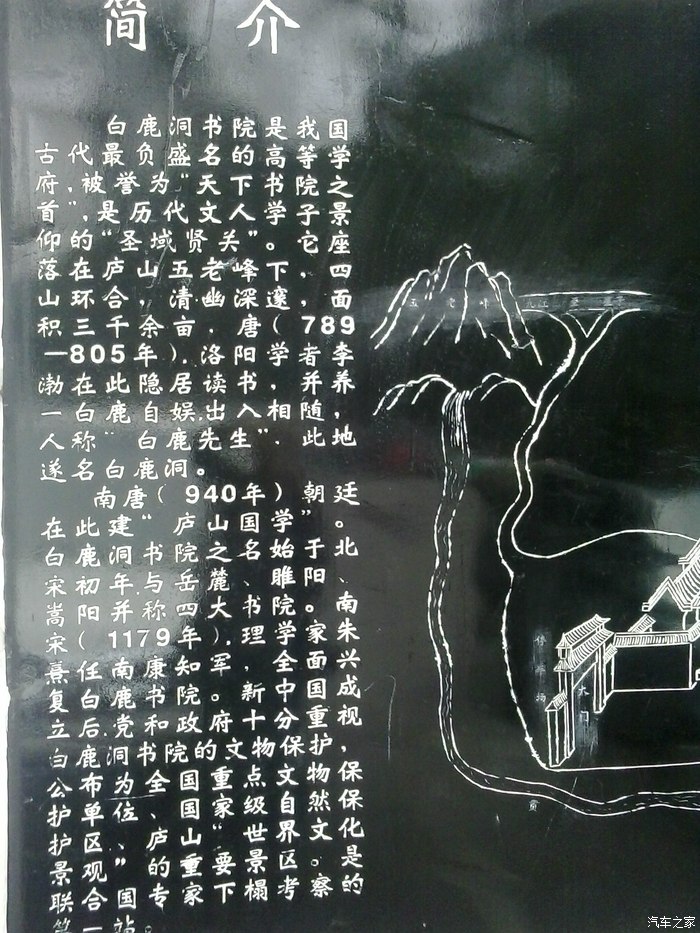 简 介
白鹿洞书院是我国
古代最负盛名的高等学
府,被誉为"天下书院之
首",是历代文人学子景
仰的"圣域贤关"。它座
落在庐山五老峰下,四
山环合,清幽深邃,面
积三千余亩,唐(789
—805年),洛阳学者李
渤在此隐居读书,并养
一白鹿自娱,出入相随,
人称"白鹿先生",此地
遂名白鹿洞。
南唐(940年)朝廷
在此建"庐山国学"。
白鹿洞书院之名始于北
宋初年,与岳麓、睢阳、
嵩阳并称四大书院。南
宋(1179年),理学家朱
熹任南康知军,全面兴
复白鹿书院。新中国成
立后,党和政府十分重视,
白鹿洞书院的文物保护,
公布为全国重点文物保
护单位、国家级自然保
护区、庐山"世界文化
景观"的重要景区。是
联合国专家下榻考察的
第一站。
五老峰
停车场
大门
汽车之家